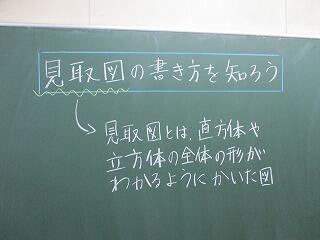 見取図の書き方を知ろう
見取図とは、直方体や
立方体の全体の形が
わかるようにかいた図